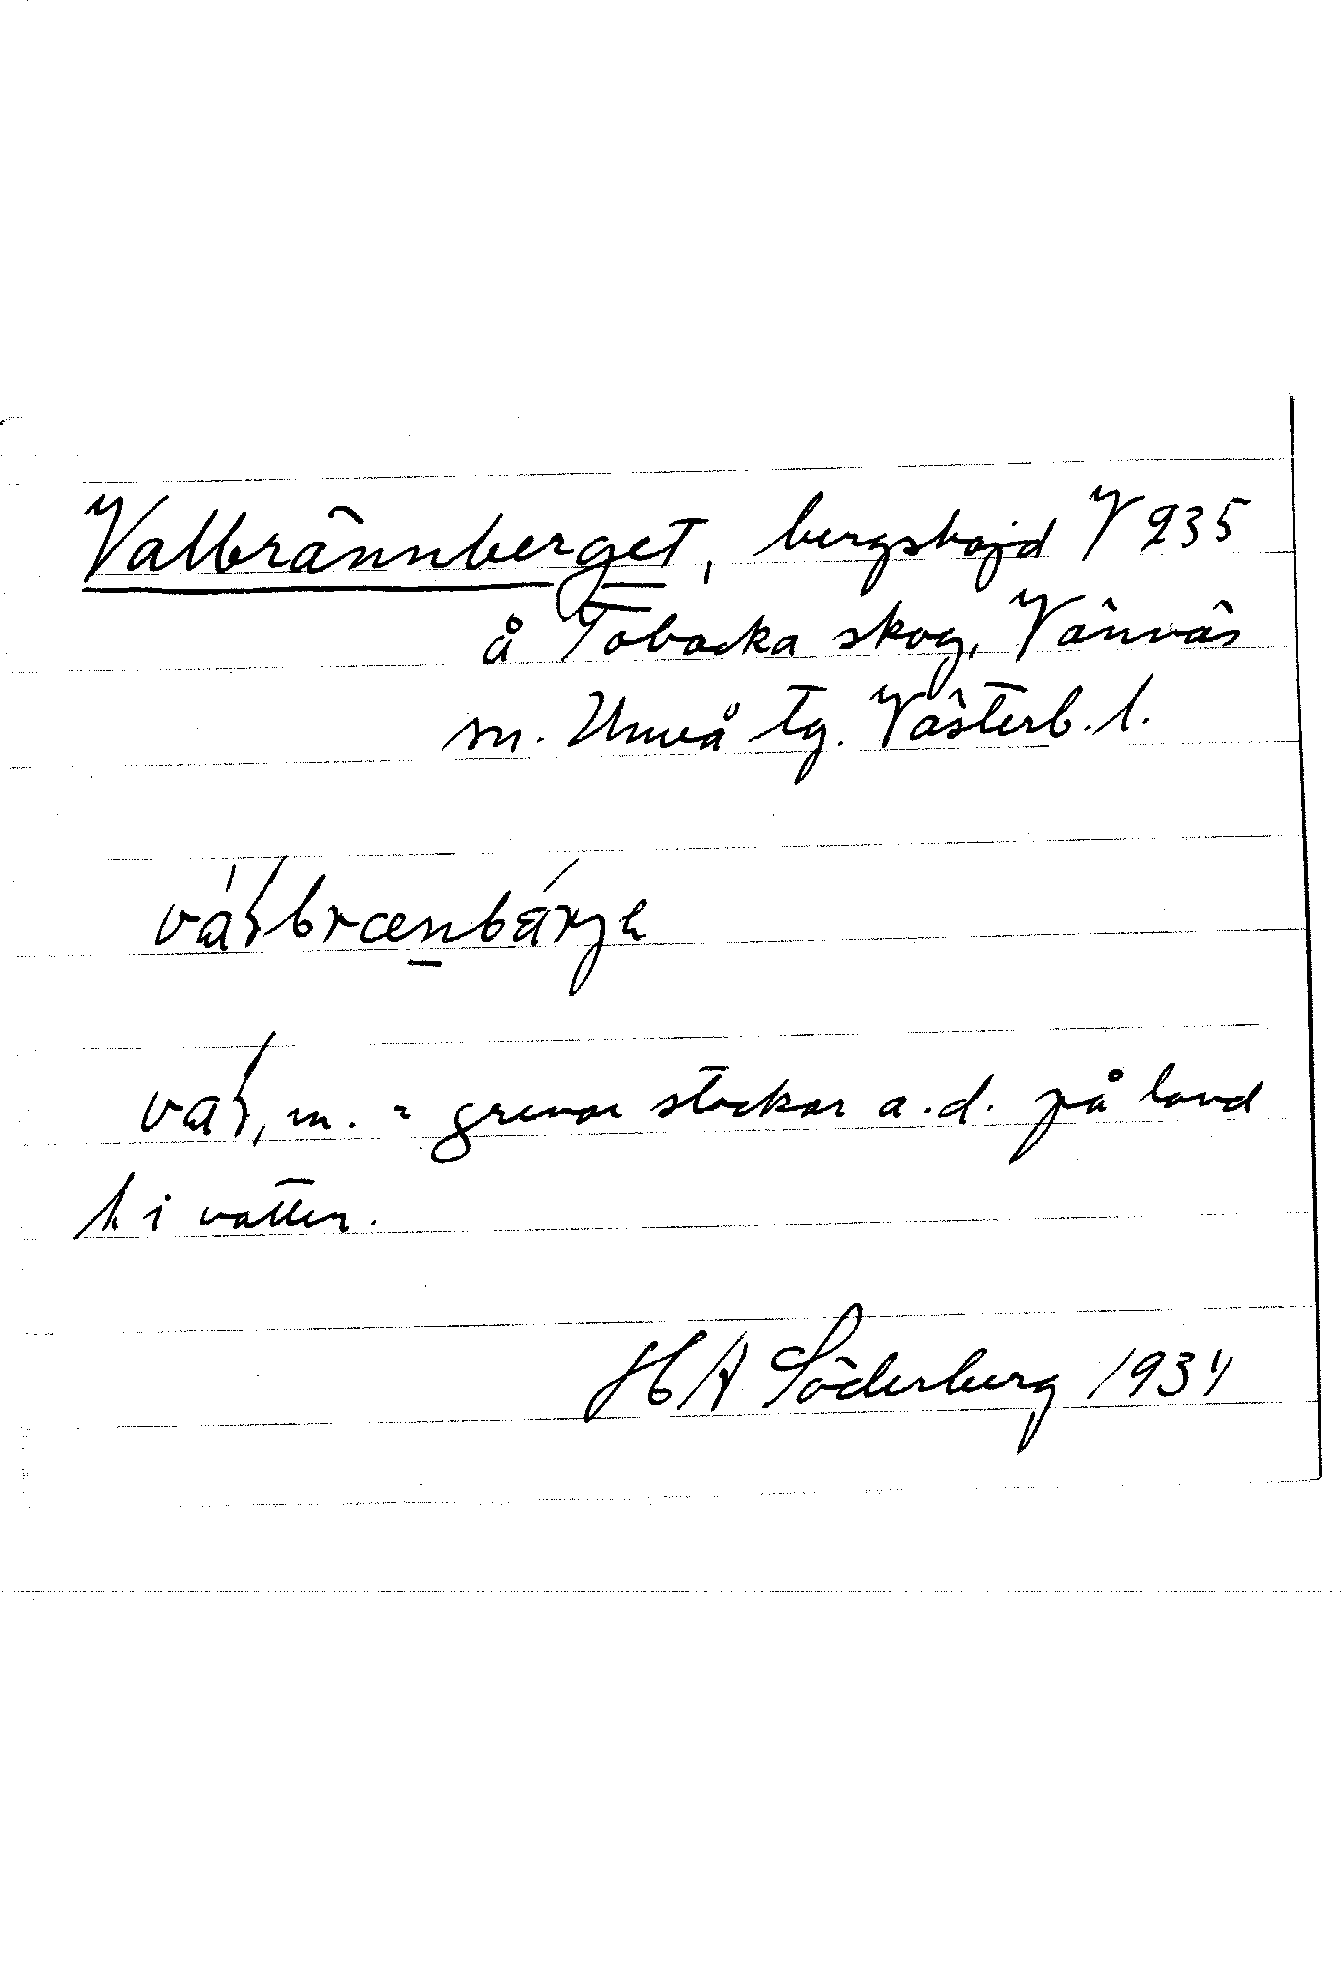 Valbrännberget, bergshöjd V 235
å Tobacka skog, Vännäs
sn. Umeå tg. Västerb. l.
váɽbrænbárje
vaɽ, m. = grenar stockar a.d. på land
l. i vatten.
H A Söderberg 1934